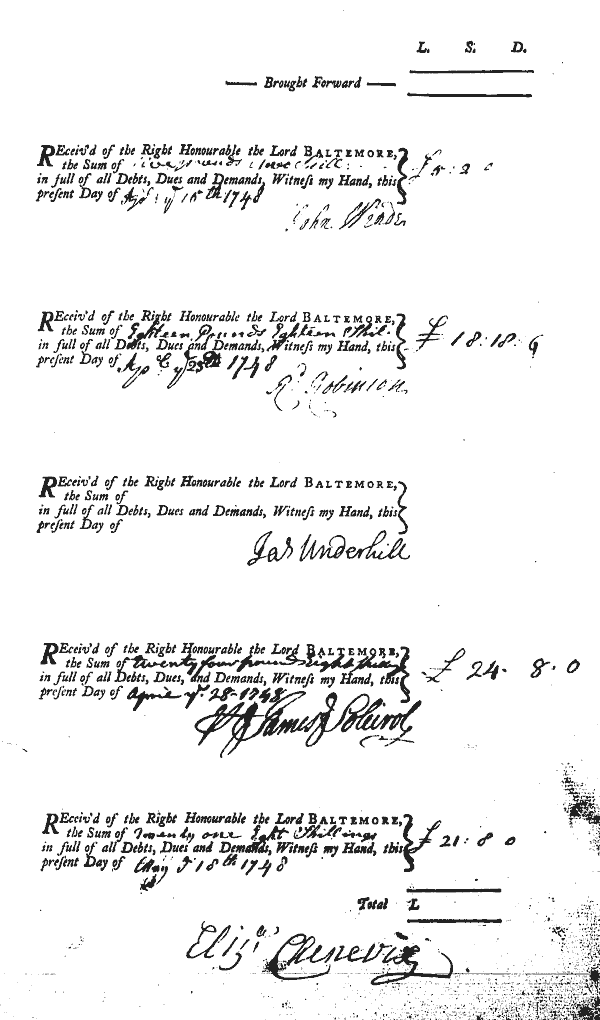 L. S. D.
Brought Forward
REceiv'd of the Right Honourable the Lord BALTEMORE,
the Sum of five pounds two Shill: £5:2 0
in full of all Debts, Dues and Demands, Witneſs my Hand, this
preſent Day of Apr: ye 15th 1748
John
REceiv'd of the Right Honourable the Lord BALTEMORE,
the Sum of Eghteen Pounds Eghteen Shil: £ 18:18:
in full of all Debts, Dues and Demands, Witneſs my Hand, this
preſent Day of ye 1748
Rd Robinson
REceiv'd of the Right Honourable the Lord BALTEMORE,
the Sum of
in full of all Debts, Dues and Demands, Witneſs my Hand, this
preſent Day of
Jas Underhill
REceiv'd of the Right Honourable the Lord BALTEMORE,
the Sum of twenty four pounds Eight £ 24. 8.0
in full of all Debts, Dues, and Demands, Witneſs my Hand, this
preſent Day of April ye. 28-1748
James
REceiv'd of the Right Honourable the Lord BALTEMORE,
the Sum of Twenty one Eght Shillings £ 21:8 0
in full of all Debts, Dues and Demands, Witneſs my Hand, this
preſent Day of May ye 18th 1748
Total £
Elizth: Chenevix